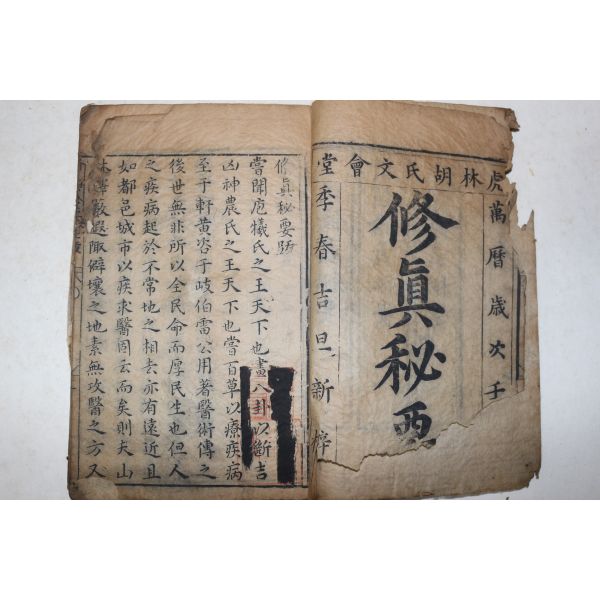 虎林胡氏文會堂
萬曆歲次壬
修眞秘要
季春吉旦新梓
修眞秘要䟦
嘗聞庖犧氏之王天下也畫八卦以斷吉
凶神農氏之王天下也嘗百草以療疾病
至于軒黃咨于岐伯雷公用著醫術傳之
後世無非所以全民命而厚民生也但人
之疾病起於不常地之相去亦有遠近且
如都邑城市以疾求醫固云而矣則夫山
林澤藪遐陬僻壤之地素無攻醫之方又